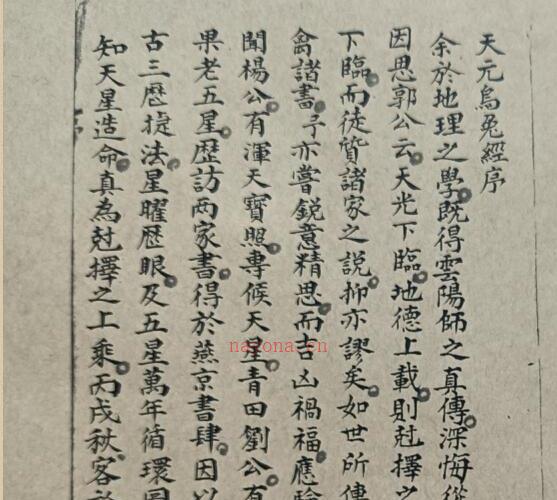 天元烏兔經序
余於地理之學既得雲陽師之真傳深悔從
因思郭公云天光下臨地德上載則尅擇之
下臨而徒質諸家之說抑亦謬矣如世所傳
禽諸書予亦嘗銳意精思而吉凶禍福應驗
聞楊公有渾天寶照專候天星青田劉公有
果老五星歷訪两家書得於燕京書肆因以
古三歷捷法星曜歷眼及五星萬年循環
知天星造命真為尅擇之上乘丙戌秋客
nayona.cn